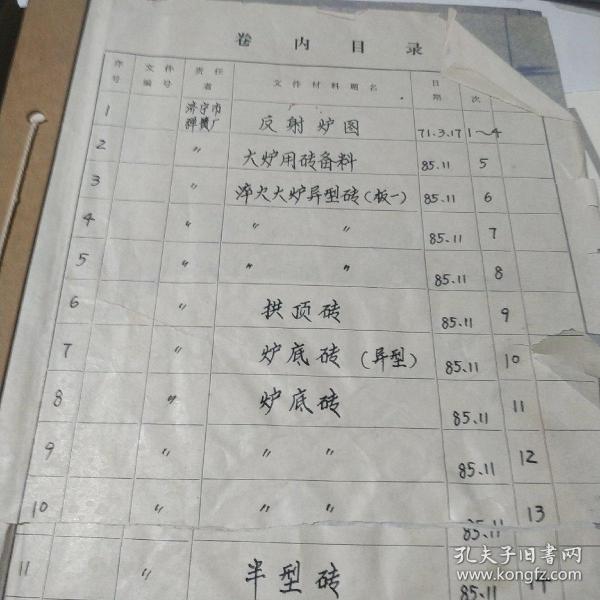 卷内目录
序号 文件编号 责任者 文件材料题名 日期 次
1 济宁市弹簧厂 反射炉图 71.3.17 1~4
2 〃 大炉用砖备料 85.11 5
3 〃 淬火大炉异型砖(板一) 85.11 6
4 〃 〃 〃 85.11 7
5 〃 〃 〃 85.11 8
6 〃 拱顶砖 85.11 9
7 〃 炉底砖(异型) 85.11 10
8 〃 炉底砖 85.11 11
9 〃 〃 〃 85.11 12
10 〃 〃 〃 85.11 13
11 〃 半型砖 85.11 14
孔夫子旧书网
www.kongfz.com